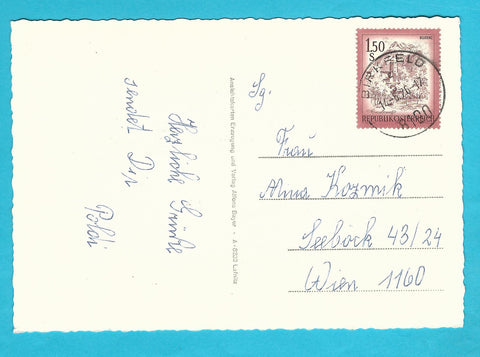 Herzliche Grüße
sendet Dir
Poldi
Ansichtskarten Erzeugung und Verlag Alfons Bayer - A-8232 Lafnitz
1.50
S
REPUBLIK ÖSTERREICH
BIRKFELD
Sg.
Frau
Anna Kozmik
Seeböck 43/24
Wien 1160